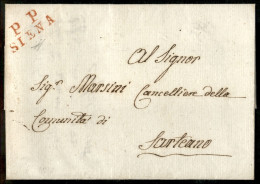 P. P.
SIENA
Al Signor
Sig.r Marsini Cancelliere della
Comunità di
Sarteano